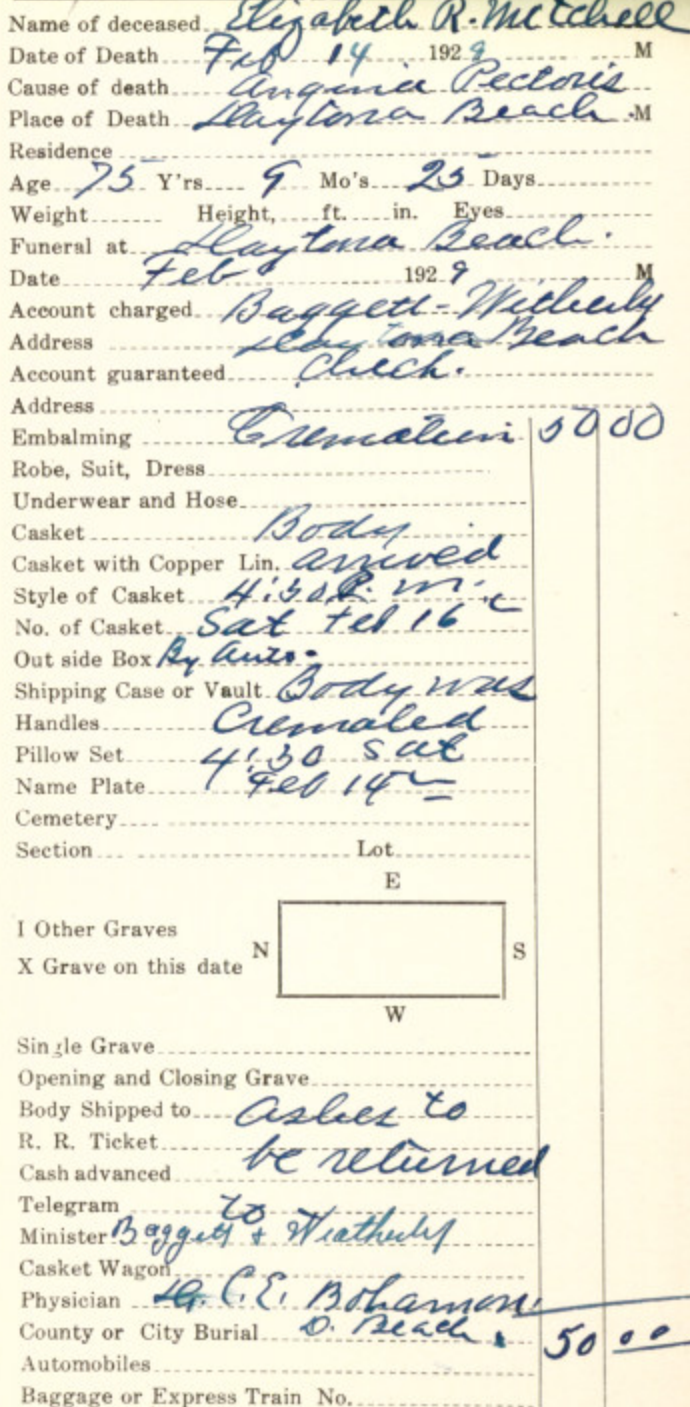 Name of deceased Elizabeth R. Mitchell
Date of Death Feb 14 1929 M
Cause of death Anginia Pectoris
Place of Death Daytona Beach M
Residence
Age 75 Y'rs 9 Mo's 25 Days
Weight Height, ft. in. Eyes
Funeral at Daytona Beach.
Date Feb 1929 M
Account charged Baggett-Witherly
Address Daytona Beach
Account guaranteed Check.
Address
Embalming Cremation 50 00
Robe, Suit, Dress
Underwear and Hose
Casket Body
Casket with Copper Lin. arrived
Style of Casket 4:30 P. m.
No. of Casket Sat Feb 16
Out side Box By auto.
Shipping Case or Vault Body was
Handles Cremated
Pillow Set 4:30 Sat
Name Plate Feb
Cemetery
Section Lot
E
I Other Graves
N S
X Grave on this date
W
Single Grave
Opening and Closing Grave
Body Shipped to Ashes to
R. R. Ticket
Cash advanced be returned
Telegram to
Minister Baggett & Weatherly
Casket Wagon
Physician Dr. C. E. Bohannon
County or City Burial D. Beach. 50 00
Automobiles
Baggage or Express Train No.